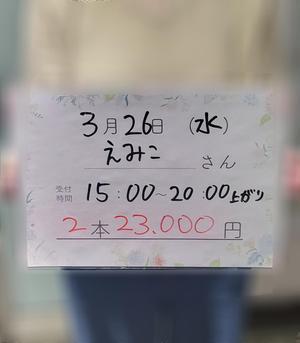 3月26日(水)
えみこ さん
受付時間 15:00~20:00上がり
2本23.000円